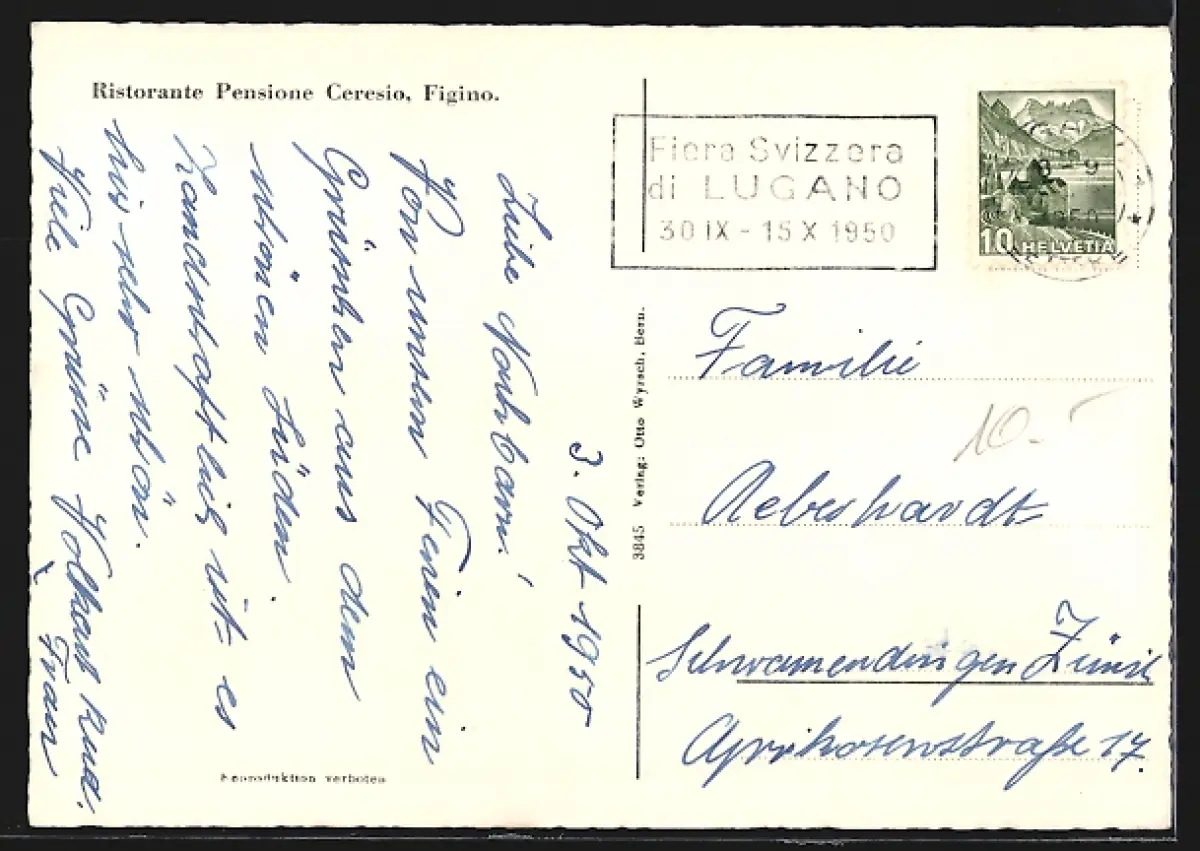 Ristorante Pensione Ceresio, Figino.
Fiera Svizzera
di LUGANO
30 IX - 15 X 1950
10 HELVETIA
3. Okt 1950
Liebe Nachbarn!
Von unseren Ferien ein
Grüschen aus dem
schönen Süden.
Landschaftlich ist es
hir sehr schön.
Viele Grüsse Volkart Rud.
Fram
Familie
Aeberhardt
Schwamendingen Zürich
Aprikosenstraße 17.
10.-
3845 Verlag: Otto Wyrsch, Bern.
Reproduktion verboten